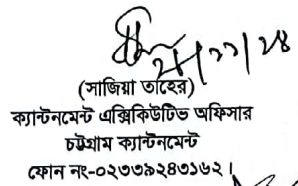 ২৮/১১/২৪
(সাজিয়া তাহের)
ক্যান্টনমেন্ট এক্সিকিউটিভ অফিসার
চট্টগ্রাম ক্যান্টনমেন্ট
ফোন নং-০২৩৩৯২৪৩১৬২।